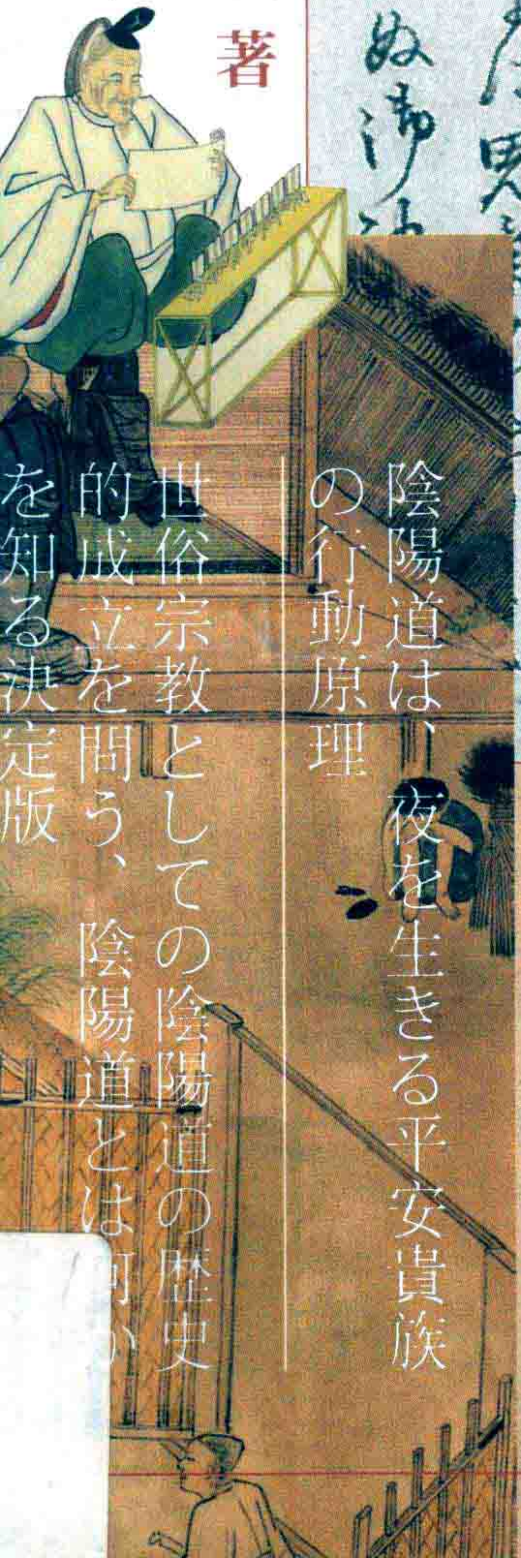 著
陰陽道は、夜を生きる平安貴族
の行動原理
世俗宗教としての陰陽道の歴史
的成立を問う、陰陽道とは何か
を知る決定版